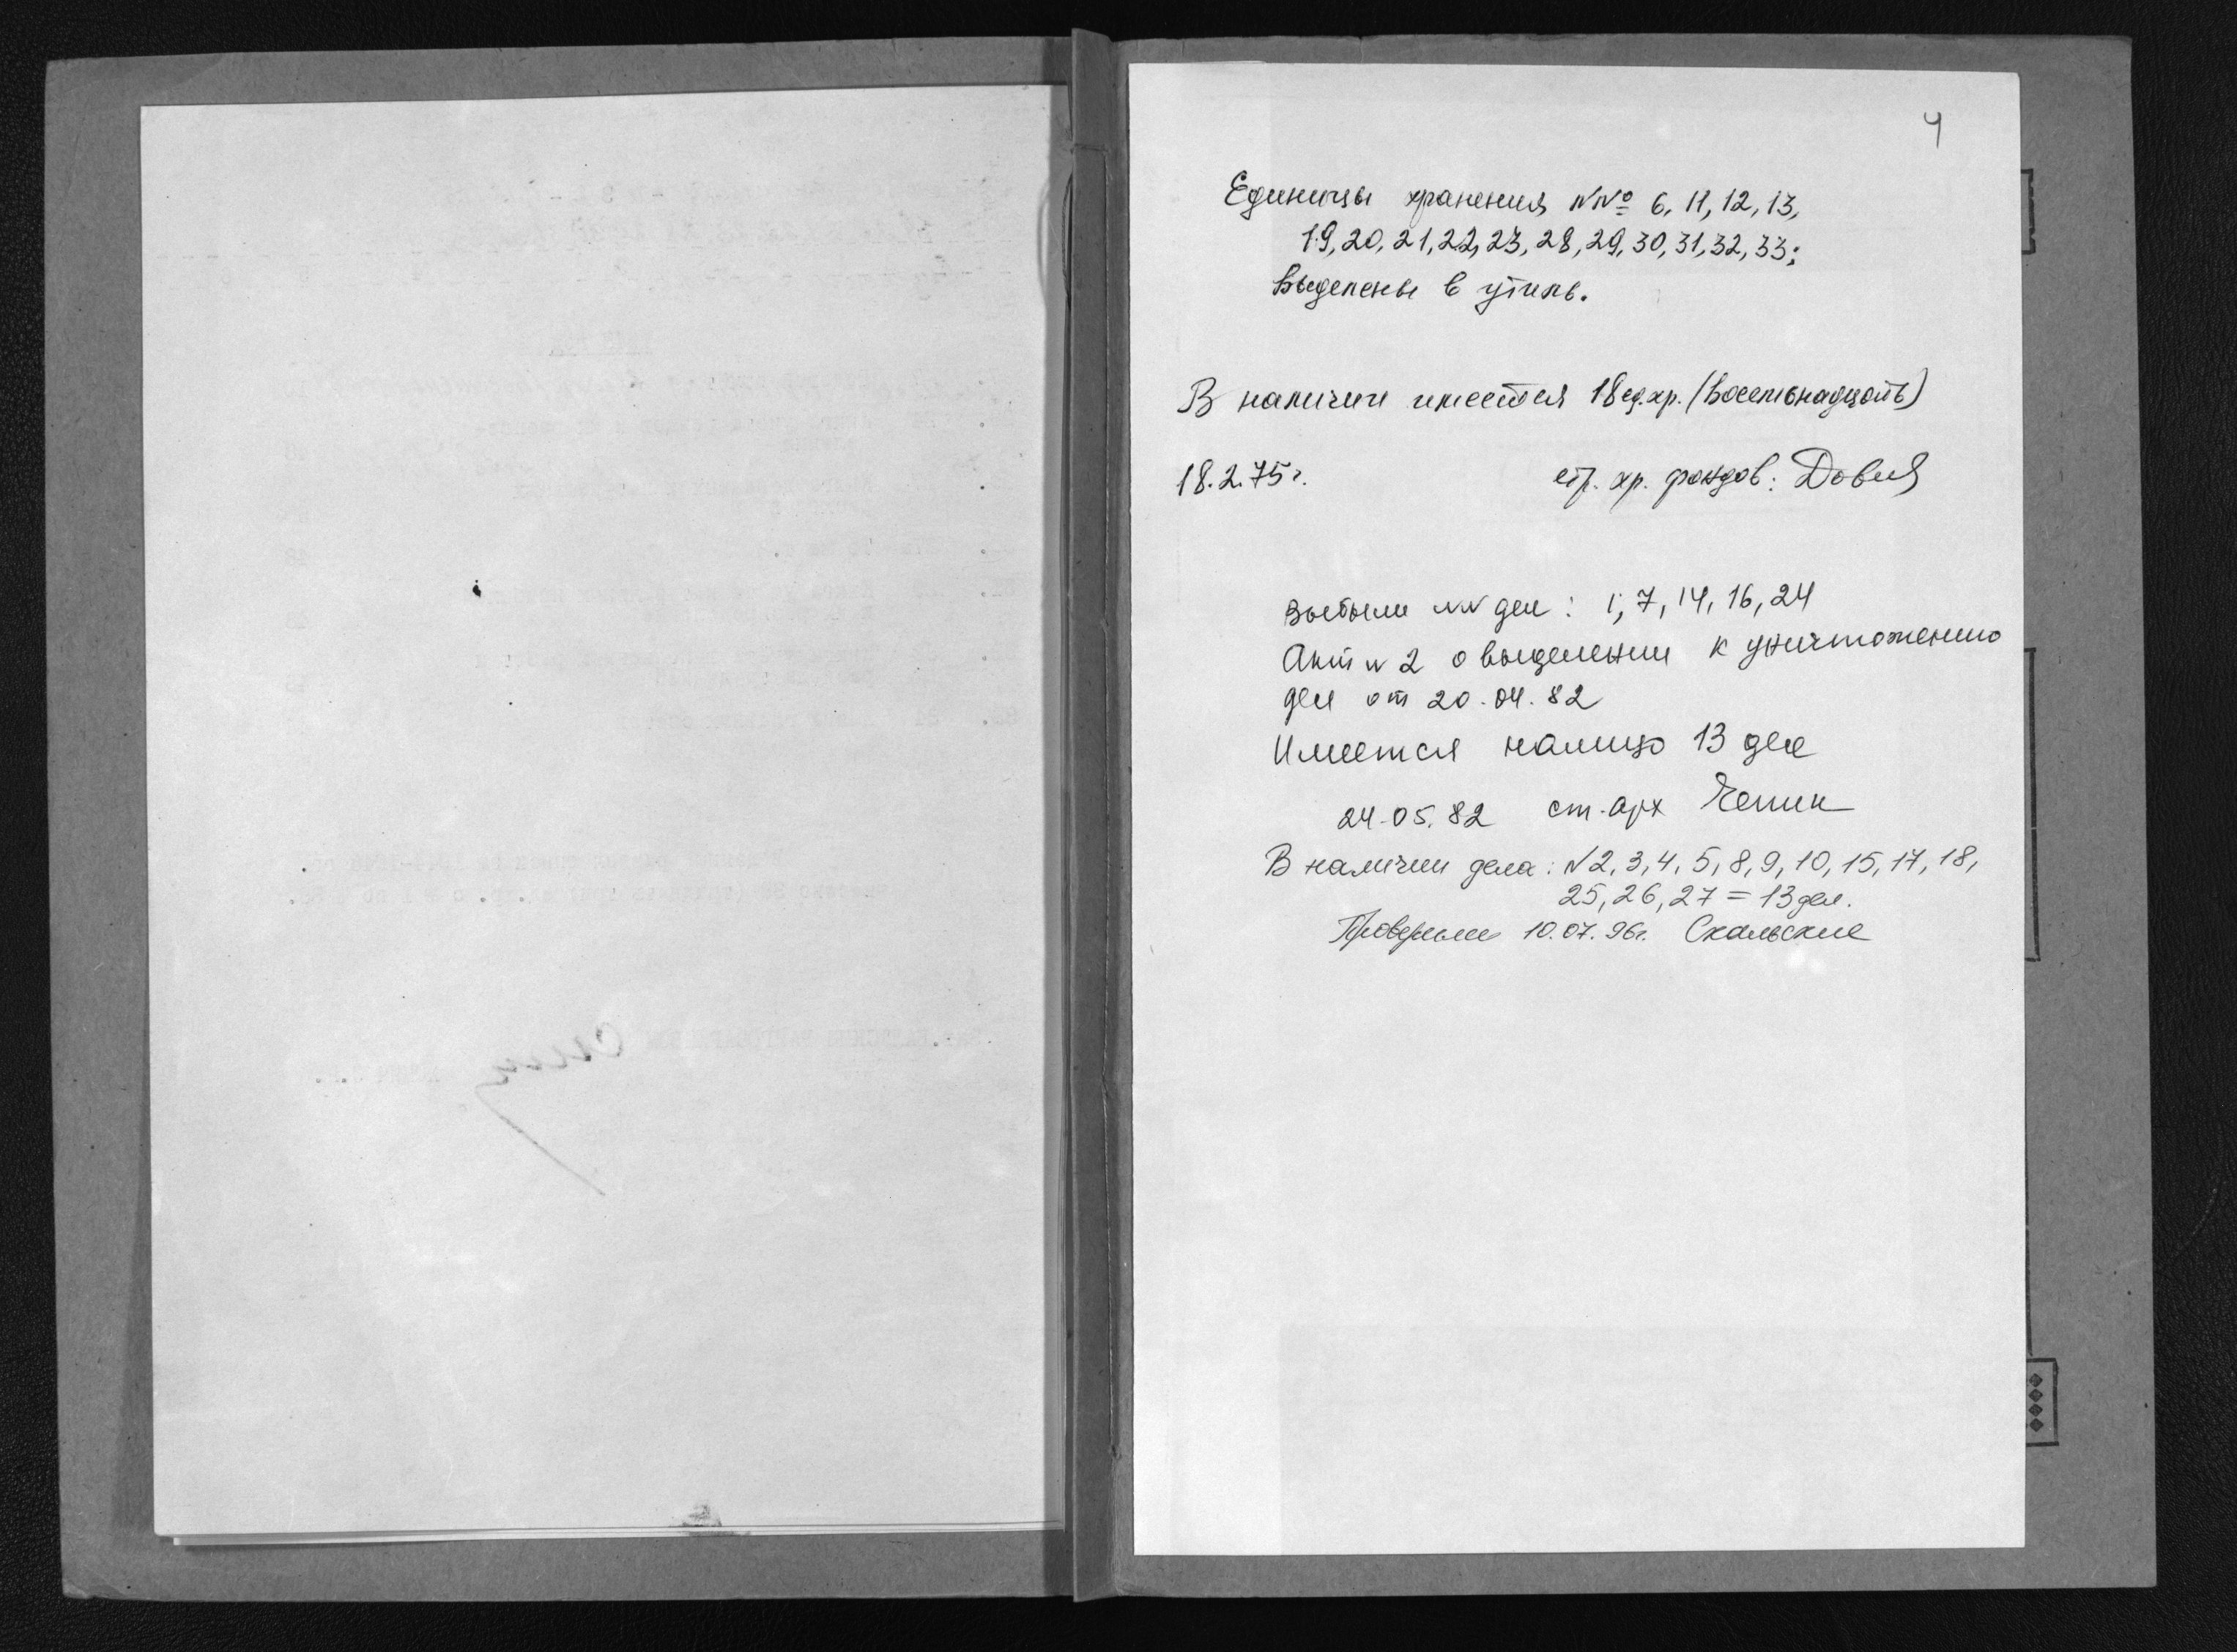 4
Единицы хранения №№ 6, 11, 12, 13,
19, 20, 21, 22, 23, 28, 29, 30, 31, 32, 33;
выделены в утиль.
В наличии имеется 18 ед. хр. (восемьнадцать)
18.2.75 г. хр. фондов:
Выбыли NN дел: 1, 7, 14, 16, 24
Акт N 2 о выделении к уничтожению
дел от 20.04.82
Имеется налицо 13 дел
24.05.82 ст. арх
В наличии дела: N 2, 3, 4, 5, 8, 9, 10, 15, 17, 18,
25, 26, 27 = 13 дел.
10.07.96г.